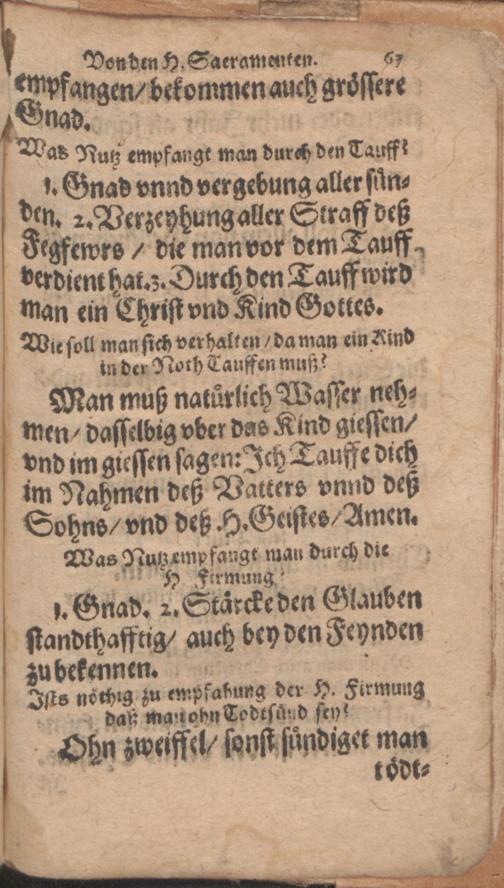 Von den H. Sacramenten. 67
empfangen/ bekommen auch grössere
Gnad.
Was Nutz empfangt man durch den Tauff?
1. Gnad vnnd vergebung aller sün-
den. 2. Verzeyhung aller Straff deß
Fegfewrs / die man vor dem Tauff
verdient hat. 3. Durch den Tauff wird
man ein Christ vnd Kind Gottes.
Wie soll man sich verhalten / da man ein Kind
in der Noth Tauffen muß?
Man muß natürlich Wasser neh-
men/ dasselbig vber das Kind giessen/
vnd im giessen sagen: Ich Tauffe dich
im Nahmen deß Vatters vnnd deß
Sohns/ vnd deß H. Geistes/ Amen.
Was Nutz empfangt man durch die
H Firmung?
1. Gnad. 2. Stärcke den Glauben
standthafftig/ auch bey den Feynden
zu bekennen.
Ists nöthig zu empfahung der H. Firmung
daß man ohn Todtsünd sey?
Ohn zweiffel/ sonst sündiget man
tödt-